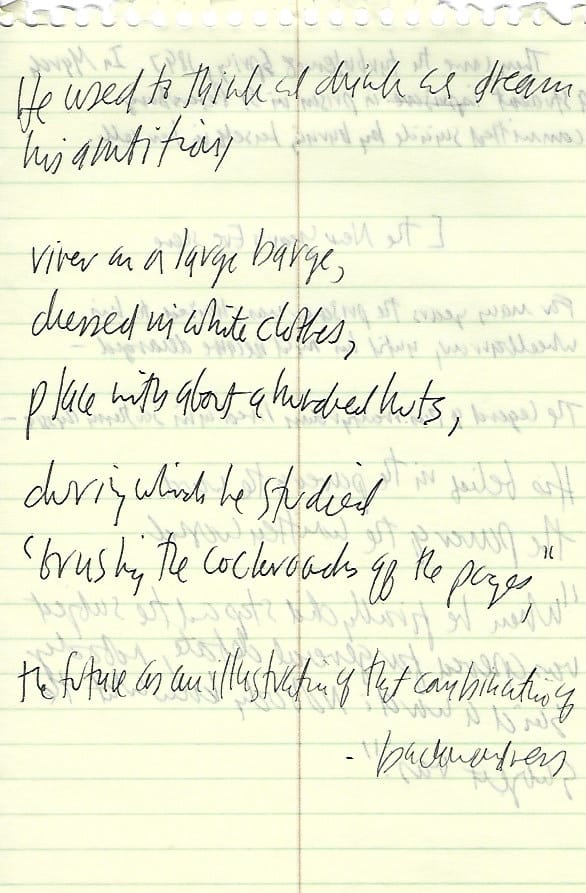 He used to think and drink and dream
his ambition,
river on a large barge,
dressed in white clothes,
place with about a hundred huts,
during which he studied
"brushing the cockroaches off the pages,"
the future as an illustration of that combination of
- backwardness